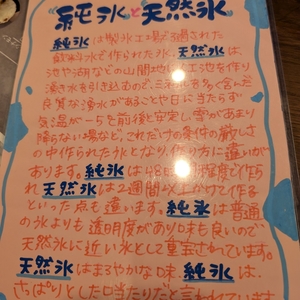 "純氷"と"天然氷"
純氷は製氷工場でろ過された
飲料水で作られた氷。天然氷は、
池や湖などの山間地に人工池を作り
湧き水を引き込むので、ミネラルを多く含んだ
良質な湧水があることや日に当たらず
気温が一5を前後安定し雪があまり
降らない場など、それだけの条件の厳しさ
の中作られた氷となり、作り方に違いが
あります。純氷は48時間程度で作ら
れ天然氷は2週間以上かけて作る
といった点も違います。純氷は普通
の氷よりも透明度があり味も良いので
天然氷に近い氷として重宝されています。
天然氷はまろやかな味、純氷は、
さっぱりとした口当たりだと言われています